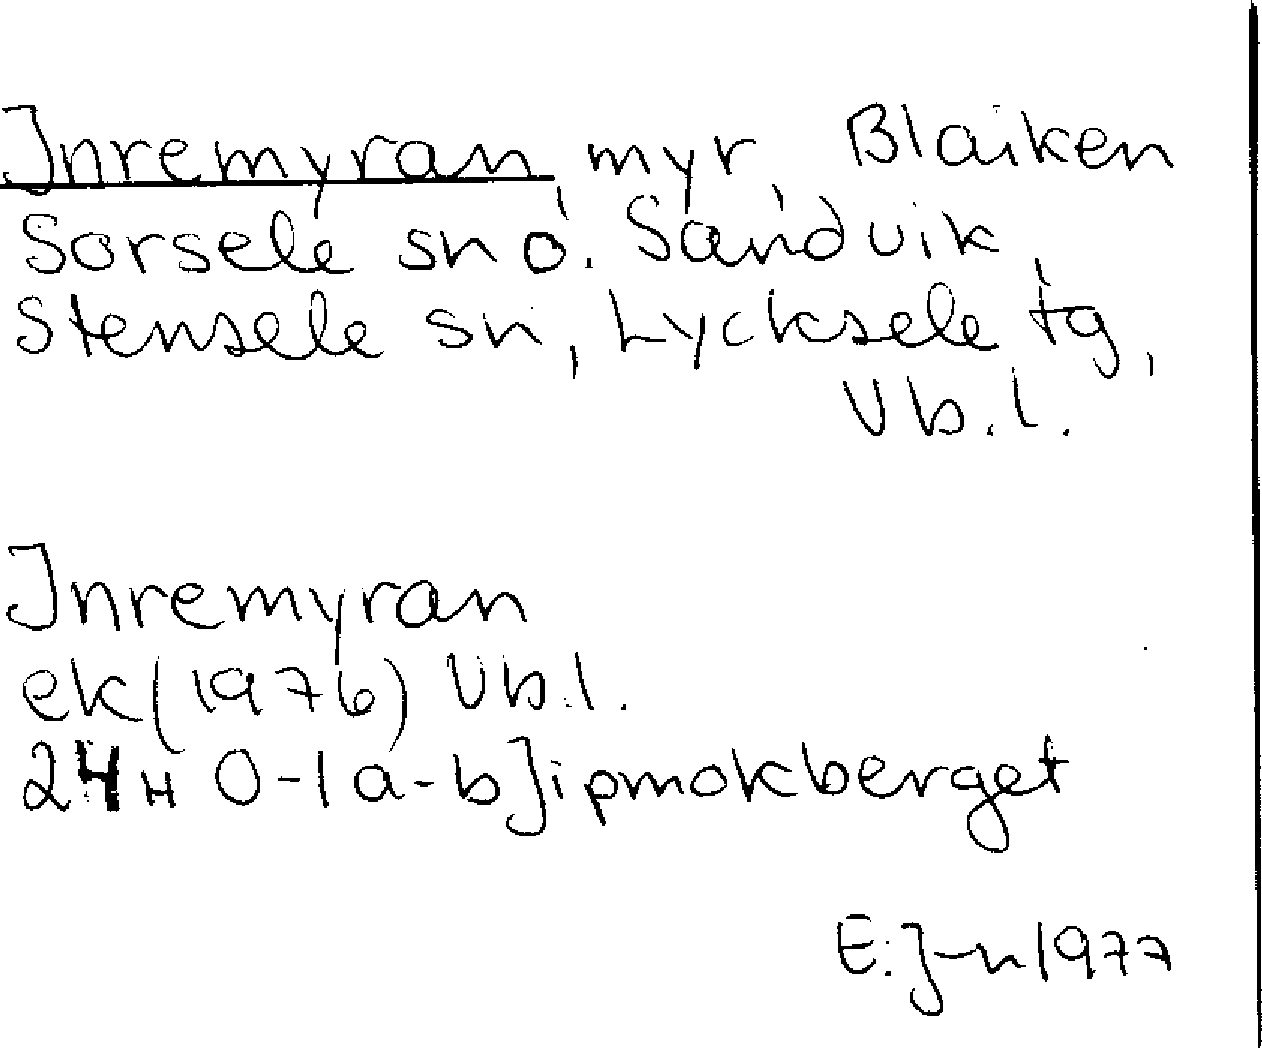 Inremyran, myr, Blaiken
Sorsele sn o. Sandvik,
Stensele sn, Lycksele tg,
Vb.l.
Inremyran
ek (1976) Vb.l.
24H 0-1a-b Jipmokberget
E. J-n 1977